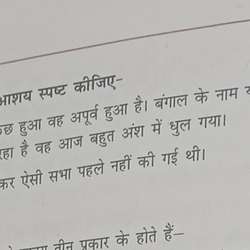 आशय स्पष्ट कीजिए–
छ हुआ वह अपूर्व हुआ है। बंगाल के नाम
रहा है वह आज बहुत अंश में धुल गया।
कर ऐसी सभा पहले नहीं की गई थी।
तीन प्रकार के होते हैं–